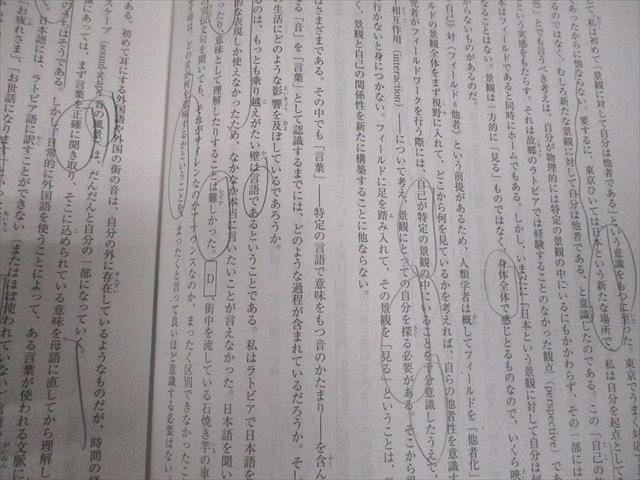 東京でうまく対応
として、私は初めて「景観に対して自分は他者である」という意識をもつに至った。
なかったからに他ならない。要するに、東京ひいては日本という新たな場所で、私は自分を起点として
するのではなく、むしろ新たな景観に対して自分は他者である、と意識したのである。この「自己の
」とでも言うべき考えは、自分が物理的には特定の景観の中にいるにもかかわらず、その一部には
という実感をもたらす。それは故郷のラトビアでは経験することのなかった観点（perspective）であ
本はフィールドであると同時にホームでもある。しかし、いまだに「日本という景観に対して自分は何
なることはない。景観は一方的に「見る」ものではなく、身体全体で感じとるものなので、いくら映
からないものがあるのだ。
自己）対〈フィールド＝他者〉という前提があるため、人類学者は概してフィールドを「他者化」
ルドの景観全体をまず視野に入れて、どこから何を見ているかを考えれば、自らの他者性を意識す
究者がフィールドワークを行う際には、自己が特定の景観の中にいることを十分意識したうえで、
相互作用（interaction）――について考え、景観にとっての自分を探る必要がある。そこから見
行かないと身につかない。フィールドに足を踏み入れて、その景観を「見る」ということは、
く、景観と自己の関係性を新たに構築することに他ならない。
はさまざまである。その中でも「言葉」――特定の言語で意味をもつ音のかたまり――を含ん
る「音」を「言葉」として認識するまでには、どのような過程が含まれているだろうか。そし
の生活にどのような影響を及ぼしているであろうか。
るのは、もっとも乗り越えがたい壁は言語であるということである。私はラトビアで日本語を
的な表現しか使えなかったため、なかなか本当に言いたいことが言えなかった。日本語を聞い
ったりの意味として理解したりすることは難しかった。 D 、街中を流している石焼き芋の車
宣伝文句を聞いても、それがサイレンなのかアナウンスなのか、まったく区別できなかったこ
まったくと言って良いほど意識する必要はない
である。初めて耳にする外国語や外国の街の音は、自分の外に存在しているようなものだが、時間の経
スケープ（soundscape 音の風景）は、だんだんと自分の一部になっていく。
にあっては、まず言葉を正確に聞き取り、そこに込められている意味を母語に直してから理解し
がそうである。しかし、日常的に外国語を使うことによって、ある言葉が使われる文脈に
日本語には、ラトビア語に訳すことができない（またはほぼ使われていない）言葉
お疲れさま」、「お世話になります